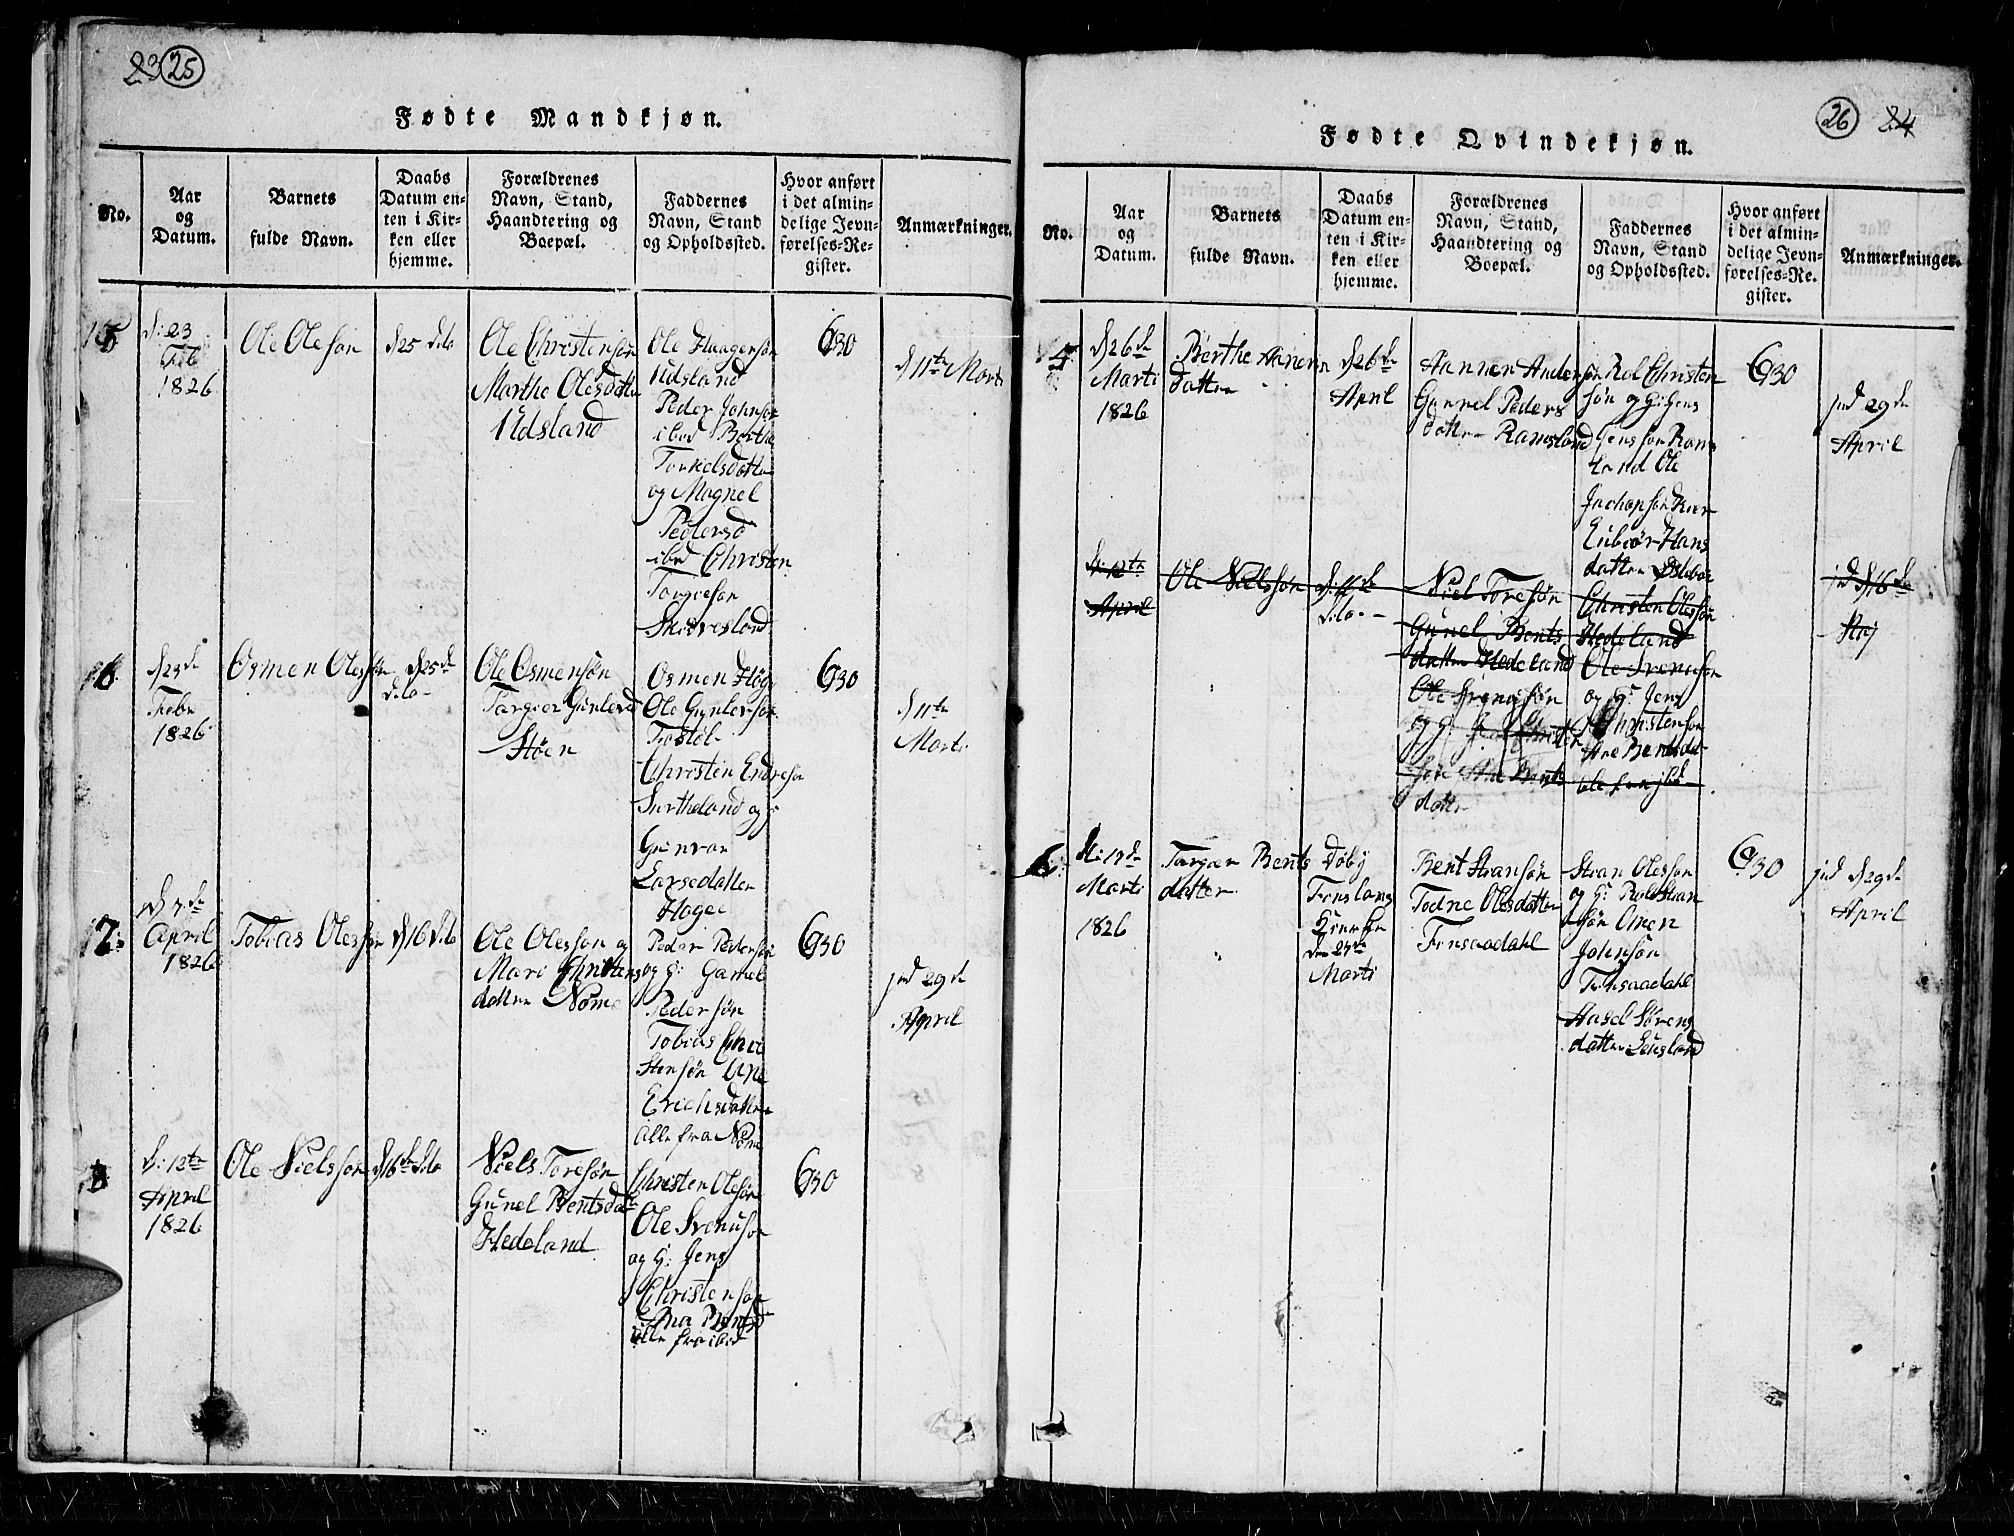 23 25
Fødte Mandkjøn.
No.
Aar
og
Datum.
Barnets
fulde Navn.
Daabs
Datum en-
ten i Kir-
ken eller
hjemme.
Forældrenes
Navn, Stand,
Haandtering og
Boepæl.
Faddernes
Navn, Stand
og Opholdssted.
Hvor anført
i det almin-
delige Jevn-
førelses-Re-
gister.
Anmærkninger.
d: 23
Feb
1826
Ole Olesøn
d 25 dito
Ole Christensøn
Marthe Olesdatter
Udsland
Ole Haagensøn
Udsland
Peder Johnsøn
ibid Berthe
Torkelsdatter
og Magnel
Pedersd
ibid Christen
Torgiesøn
Skiøvesland
630
d 11te Marti
Febr
1826
Osmen Olessøn
d 25de
dito
Ole Osmensøn
Torgier Gunlevsd
Støen
Osmen Høge
Ole Gunlevsøn
Trostøl
Christen Endresøn
og g:
Gunvor
Larsdatter
Høge
630
d 11te
Marti
12:
d 7de
April
1826
Tobias Olessøn
d 16 dito
Ole Olessøn og
Mari Christens
datter Nome
Peder Pedersøn
og g: Gamel
Pedersøn
Tobias Chri
stensøn Ane
Erichsdatter
alle fra Nome
630
jnd 29de
April
d: 12te
April
1826
Ole Nielssøn
d 16de dito
Niels Toresøn
Gunel Bentsdatter
Hedeland
Christen Olesøn
Ole Svenusøn
og g: Jens
Christensøn
Ane Bentsd
alle fra ibid
630
26 24
Fødte Qvindekjøn.
No.
Aar
og
Datum.
Barnets
fulde Navn.
Daabs
Datum en-
ten i Kir-
ken eller
hjemme.
Forældrenes
Navn, Stand,
Haandtering og
Boepæl.
Faddernes
Navn, Stand
og Opholdssted.
Hvor anført
i det almin-
delige Jevn-
førelses-Re-
gister.
Anmærkninger.
5:
d 26de
Marti
1826
Berthe Hannen
datter
d 26de
April
Hannen Andersøn
Gunel Peders
datter Ramsland
Rol Christen
søn og g: Jens
Jenssøn Ram
sland Ole
Jachopsøn
Hans
datter
630
jnd 29de
April
d: 12te
April
Ole Nielssøn
dito
Niel Toresøn
Gunel Bents
datter Hedeland
Ole Svenusøn
og g: Jens Christen
søn Ane Bents
datter
Christen Olessøn
Hedeland
Ole Svenusøn
og g: Jens
Christensøn
Ane Bentsda
alle fra ibid
jnd d 16de
Maj
6:
Marti
1826
Torgier Bents
datter
Døbt
den 27de
Marti
Bent Stiansøn
Todne Olesdatter
Finsaadahl
Stian Olessøn
og g: Rold Stian
søn Omen
Johnsøn
Finsaadahl
Aasel Sørens
datter
630
jnd d 29de
April